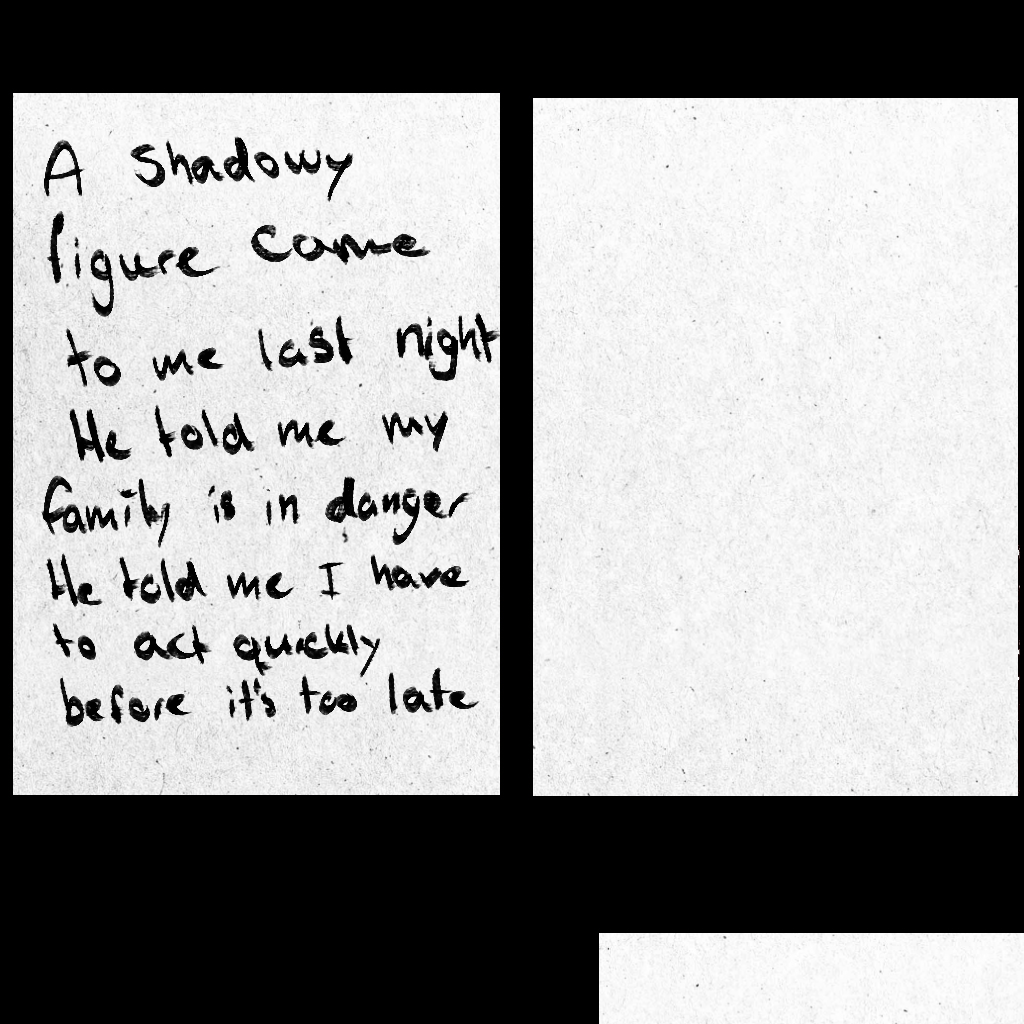 A shadowy
figure came
to me last night
He told me my
family is in danger
He told me I have
to act quickly
before it's too late